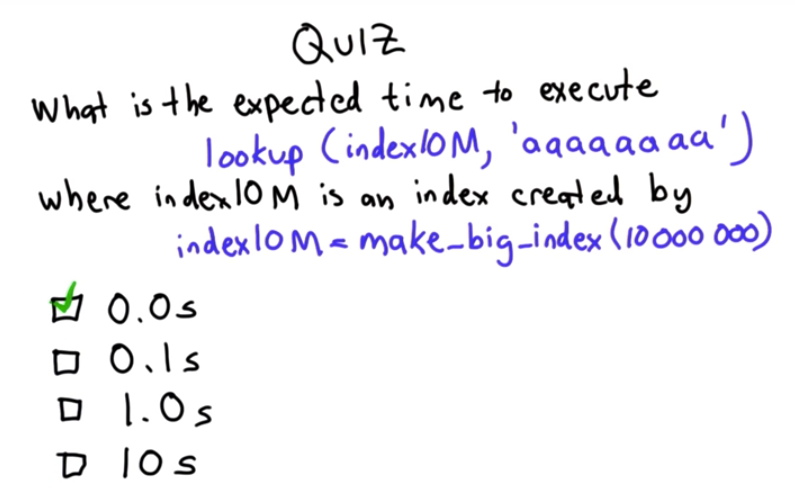 QUIZ
What is the expected time to execute
lookup (index10M, 'aaaaaaaa')
where index10M is an index created by
index10M = make_big_index(10000000)
0.0s
0.1s
1.0s
10s